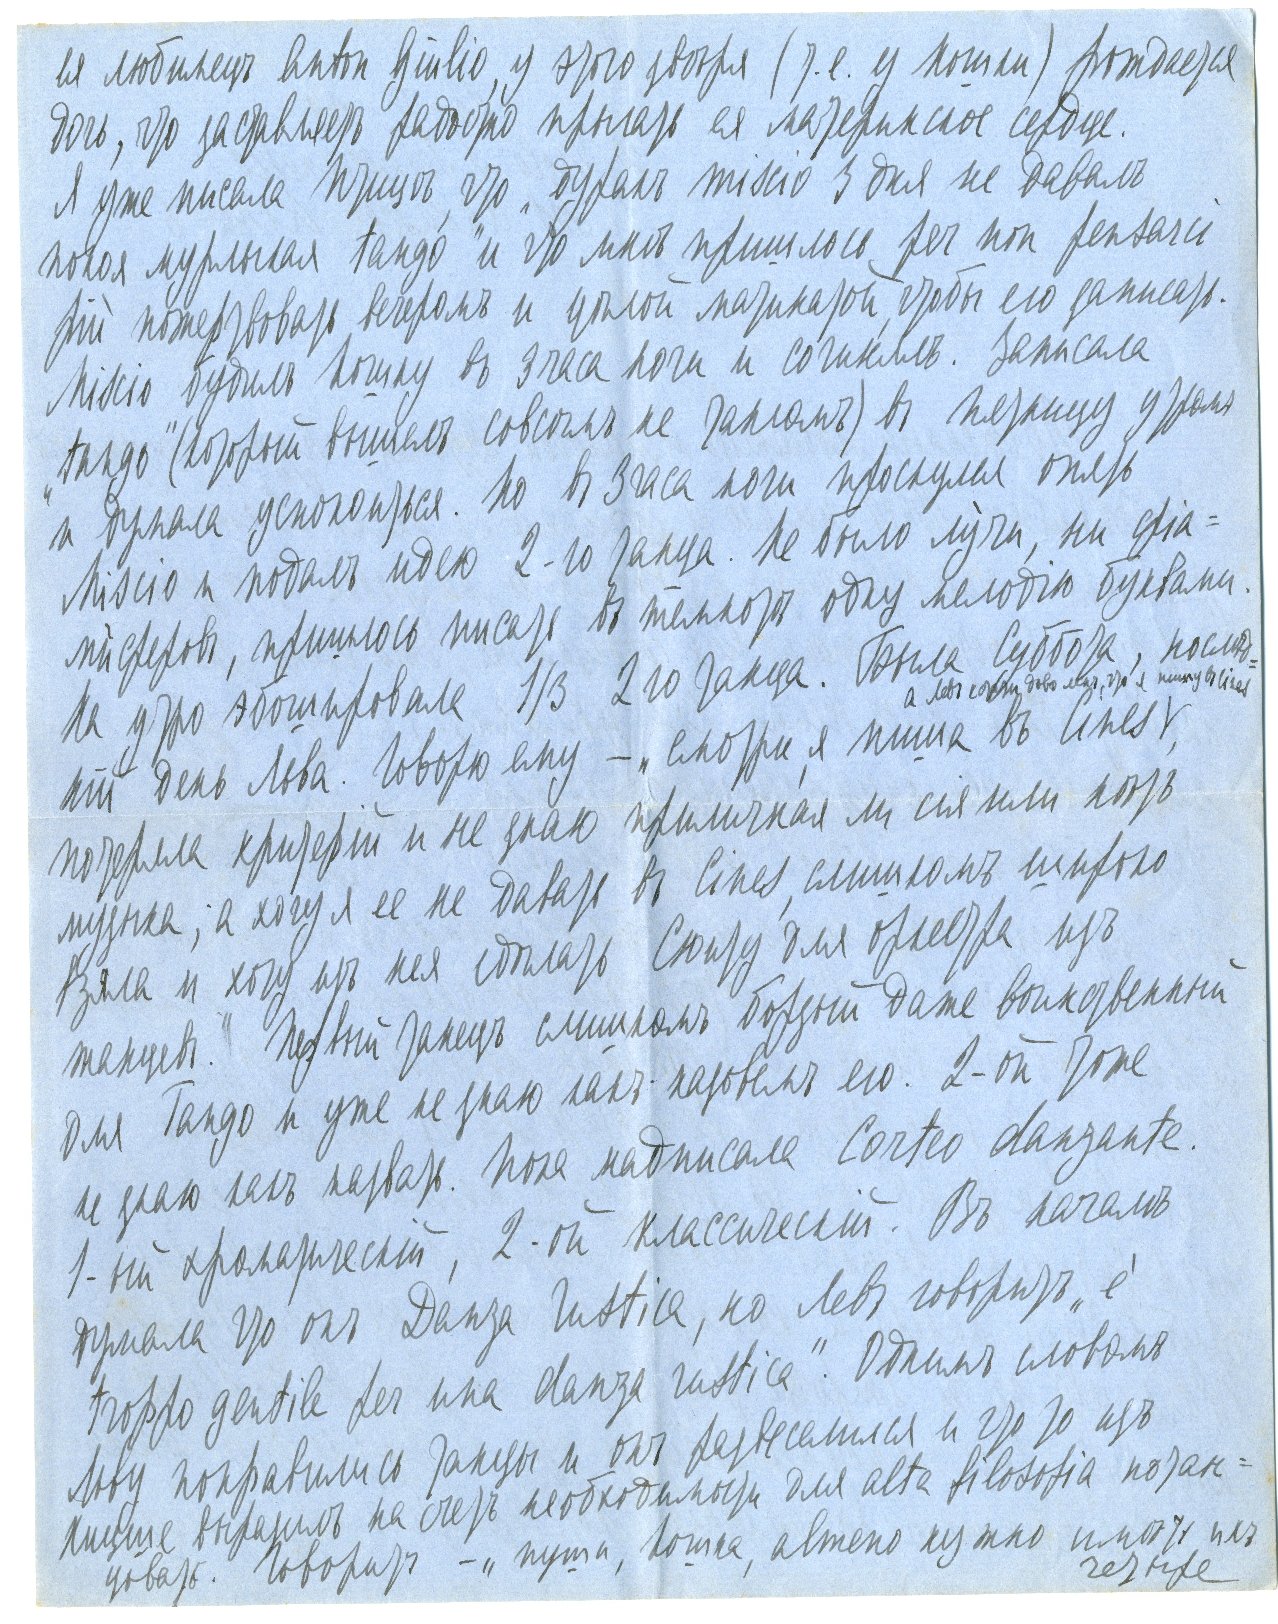 ея любимецъ Anton Giulio, у этого дворя (т.е. у кошки) рождается
дочь, что заставляетъ радостно прыгать ея материнское сердце.
Я уже писала Птицѣ, что „дуракъ miscio 3 дня не давалъ
покоя мурлыкая tango" и что мнѣ пришлось per non pensarci
più пожертвовать вечеромъ и цѣлой матинатой, чтобы его записать.
Miscio будилъ кошку въ 3 часа ночи и сочинялъ. Записала
„tango" (который вышелъ совсѣмъ не тангомъ) въ пятницу утромъ
и думала успокоиться. Но въ 3 часа ночи проснулся опять
Miscio и подалъ идею 2-го танца. Не было лучи, ни фіа=
миферовъ, пришлось писать въ темнотѣ одну мелодію буквами.
На утро эбошировала 1/3 2го танца. Была Суббота, послѣд=
ній день Льва. Говорю ему – „смотри, я пиша въ Cines V,
а Левъ очень доволенъ, что я пишу въ Cines
потеряла критерій и не знаю приличная ли сія или нѣтъ
музыка; а хочу я ее не давать въ Cines, слишкомъ широко
взяла и хочу изъ нея сдѣлать Сюиту для оркестра изъ
танцевъ." Первый танецъ слишкомъ бордый даже воинственный
для Танго и уже не знаю какъ назовемъ его. 2-ой тоже
не знаю какъ назвать. Пока надписала Corteo danzante.
1-ый хроматическій, 2-ой классическій. Въ началѣ
думала что онъ Danza rustica, но Левъ говоритъ „è
troppo gentile per una danza rustica". Однимъ словомъ
Льву понравились танцы и онъ развеселился и что то изъ
Ницше выразилъ на счетъ необходимости для alta filosofia потан=
цовать. Говоритъ – „пуши, кошка, almeno нужно имѣть ихъ
четыре